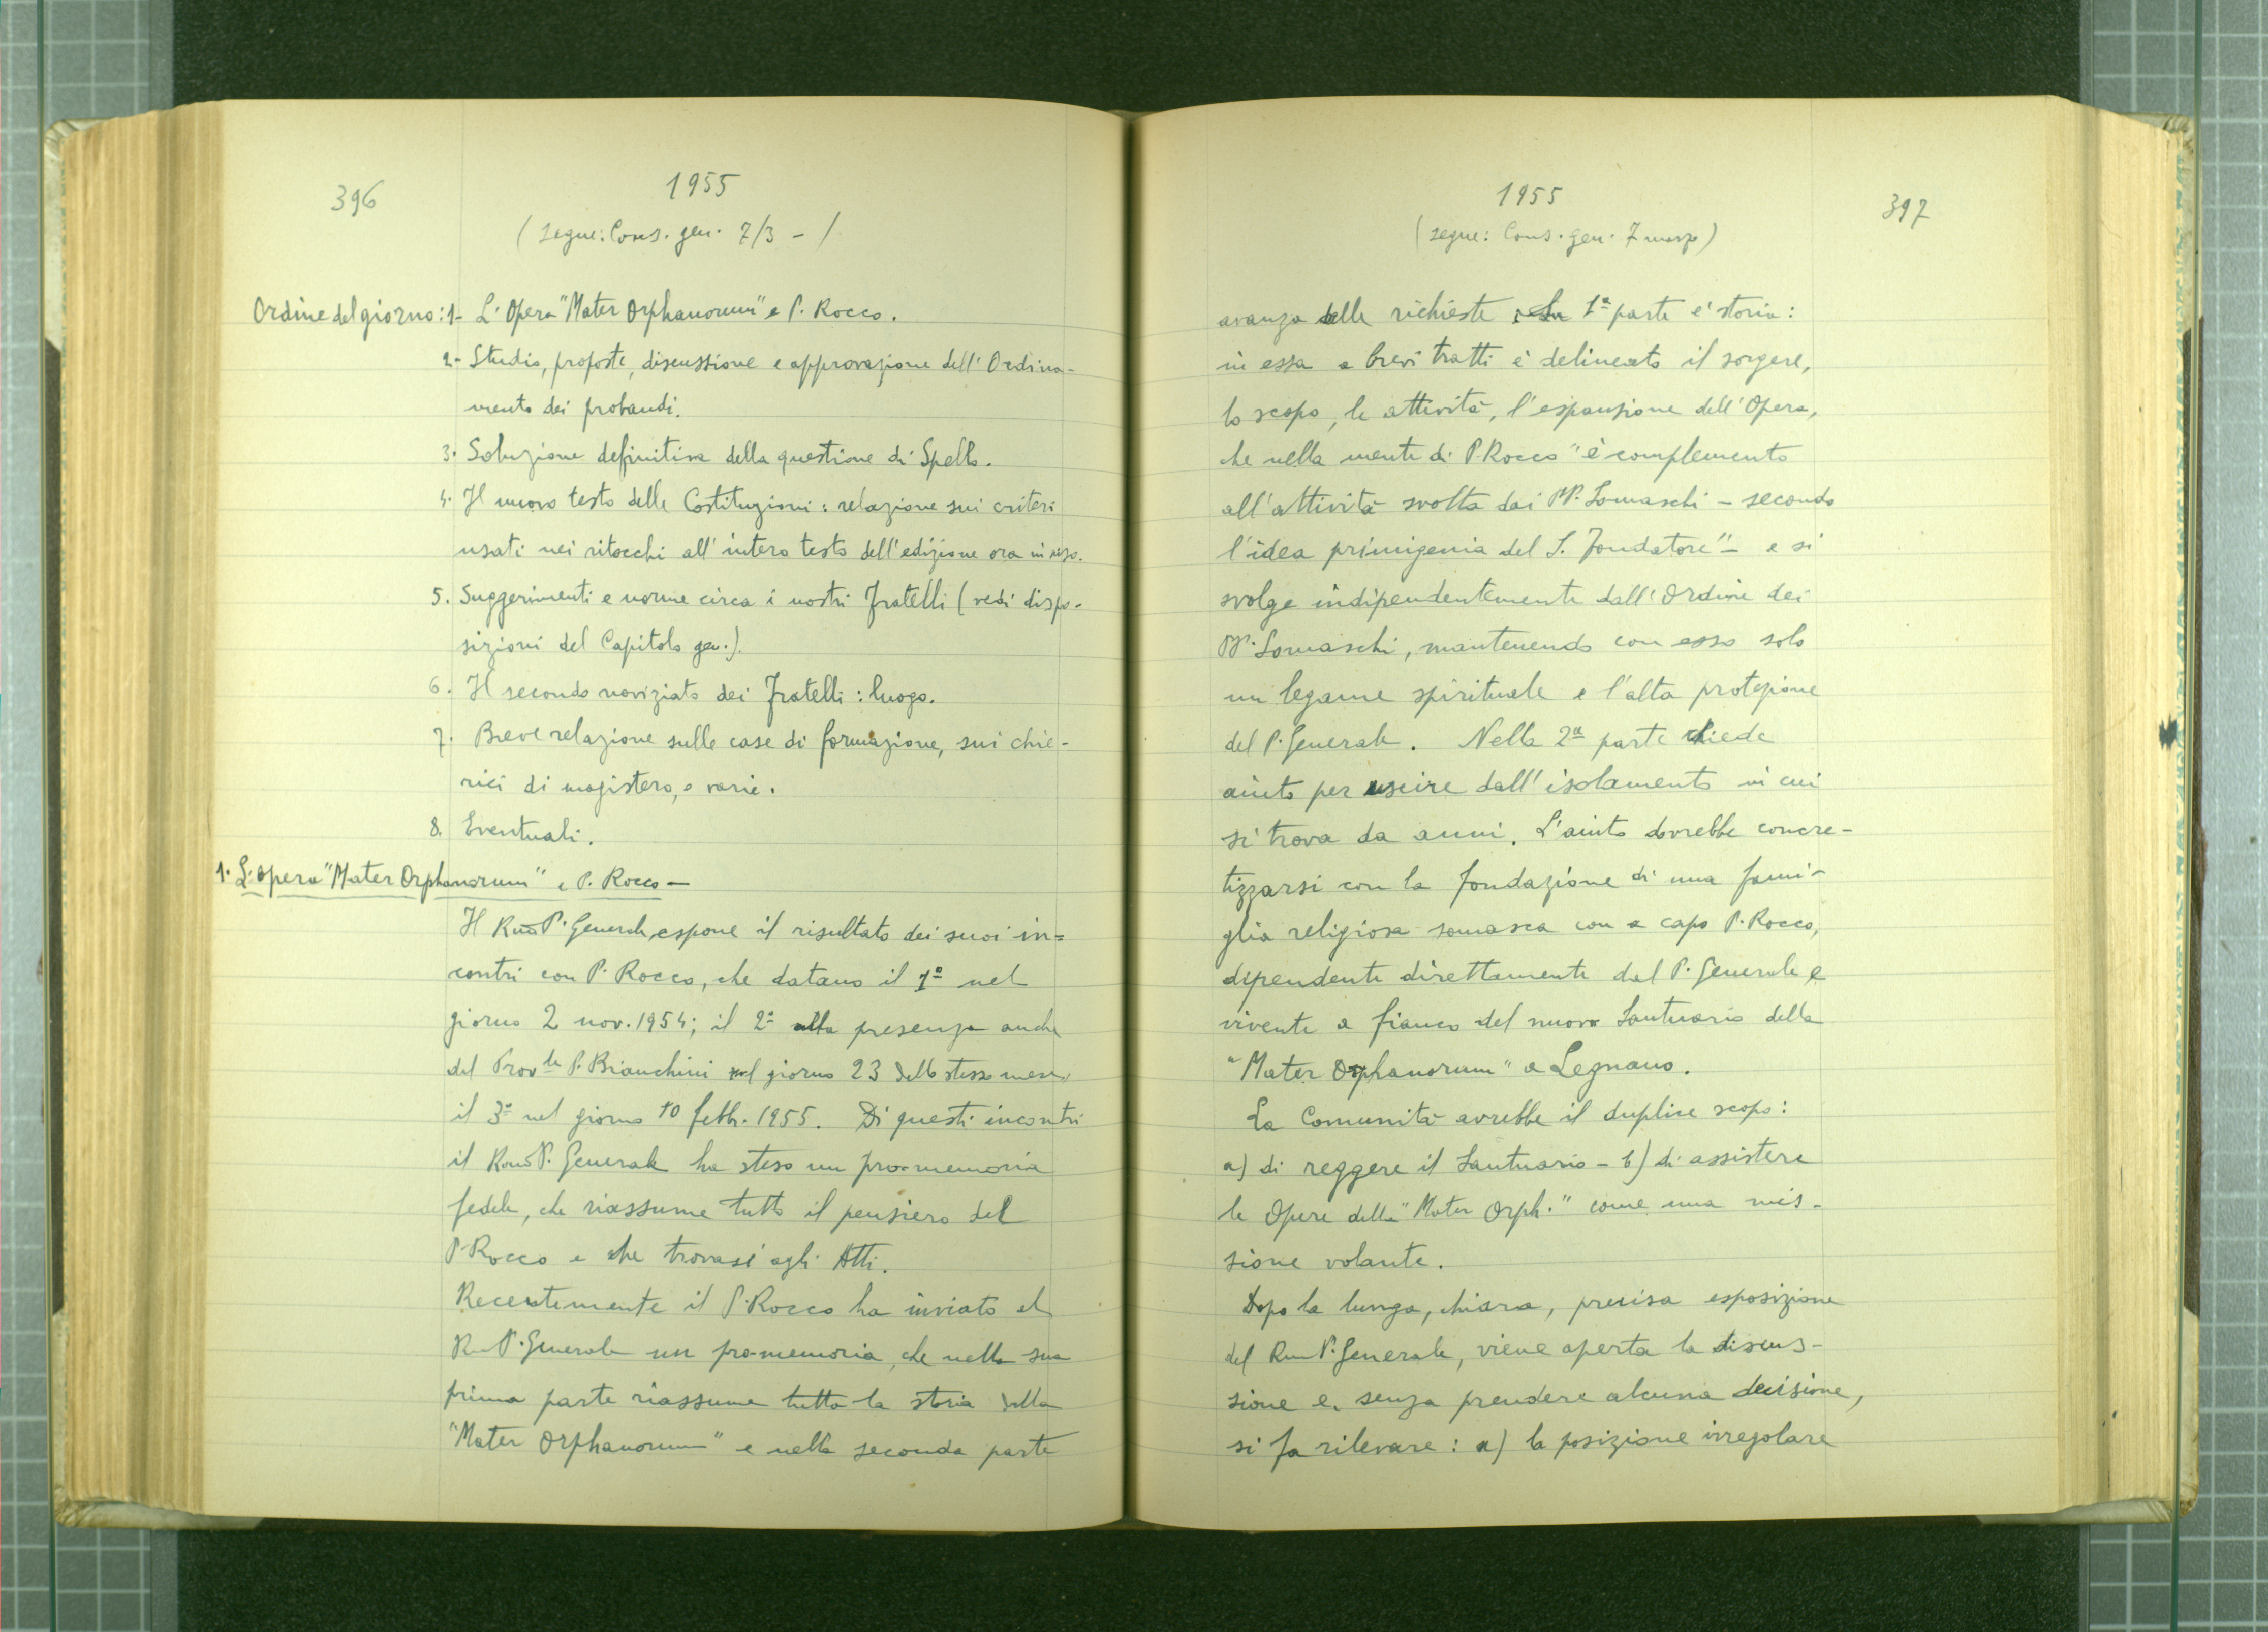 396
1955
(segue: Cons. gen. 7/3 - /
Ordine del giorno: 1- L'Opera "Mater Orphanorum" e P. Rocco.
2- Studio, proposte, discussione e approvazione dell'Ordina-
mento dei probandi.
3. Soluzione definitiva della questione di Spello.
4. Il nuovo testo delle Costituzioni: relazione sui criteri
usati nei ritocchi all'intero testo dell'edizione ora in uso.
5. Suggerimenti e norme circa i nostri Fratelli (vedi dispo-
sizioni del Capitolo gen.).
6. Il secondo noviziato dei Fratelli: luogo.
7. Breve relazione sulle case di formazione, sui chie-
rici di magistero, e varie.
8. Eventuali.
1. L'opera "Mater Orphanorum" e P. Rocco -
Il Rmo P. Generale espone il risultato dei suoi in=
contri con P. Rocco, che datano il 1º nel
giorno 2 nov. 1954; il 2º alla presenza anche
del Prov.le P. Bianchini nel giorno 23 dello stesso mese,
il 3º nel giorno 10 febb. 1955. Di questi incontri
il Rmo P. Generale ha steso un pro-memoria
fedele, che riassume tutto il pensiero del
P. Rocco e che trovasi agli Atti.
Recentemente il P. Rocco ha inviato al
Rm P. Generale un pro-memoria, che nella sua
prima parte riassume tutta la storia della
"Mater Orphanorum" e nella seconda parte
1955
397
(segue: Cons. gen. 7 marzo)
avanza delle richieste. La 1ª parte è storia:
in essa a brevi tratti è delineato il sorgere,
lo scopo, le attività, l'espansione dell'Opera,
che nella mente di P. Rocco "è complemento
all'attività svolta dai PP. Somaschi - secondo
l'idea primigenia del S. Fondatore" - e si
svolge indipendentemente dall'Ordine dei
PP. Somaschi, mantenendo con esso solo
un legame spirituale e l'alta protezione
del P. Generale. Nella 2ª parte chiede
aiuto per uscire dall'isolamento in cui
si trova da anni. L'aiuto dovrebbe concre-
tizzarsi con la fondazione di una fami-
glia religiosa somasca con a capo P. Rocco,
dipendente direttamente dal P. Generale e
vivente a fianco del nuovo Santuario della
"Mater Orphanorum" a Legnano.
La Comunità avrebbe il duplice scopo:
a) di reggere il Santuario - b) di assistere
le Opere della "Mater Orph." come una mis-
sione volante.
Dopo la lunga, chiara, precisa esposizione
del Rm P. Generale, viene aperta la discus-
sione e, senza prendere alcuna decisione,
si fa rilevare: a) la posizione irregolare